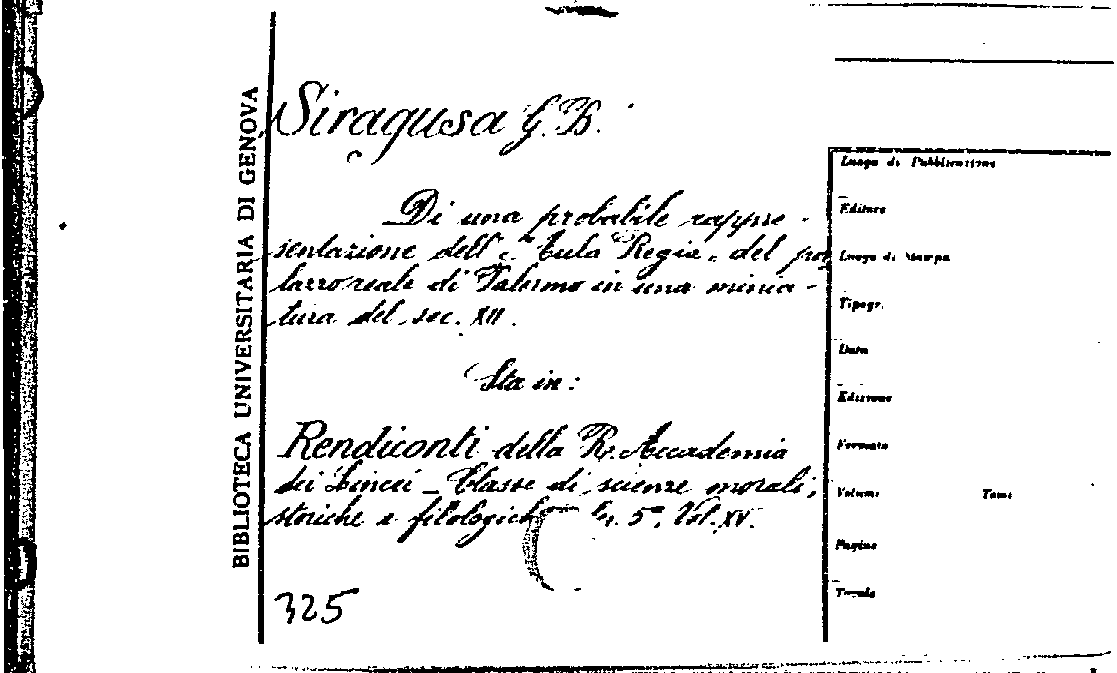 BIBLIOTECA UNIVERSITARIA DI GENOVA
Siragusa G. B.
Di una probabile rappre-
sentazione dell' "Aula Regia" del pa
lazzo reale di Palermo in una minia-
tura del sec. XII.
Sta in:
Rendiconti della R. Accademia
dei Lincei - Classe di scienze morali,
storiche e filologiche Sr. 5ª, Vol. XV.
325
Luogo di Pubblicazione
Editore
Luogo di Stampa
Tipogr.
Data
Edizione
Formato
Volume Tomo
Pagine
Tavole